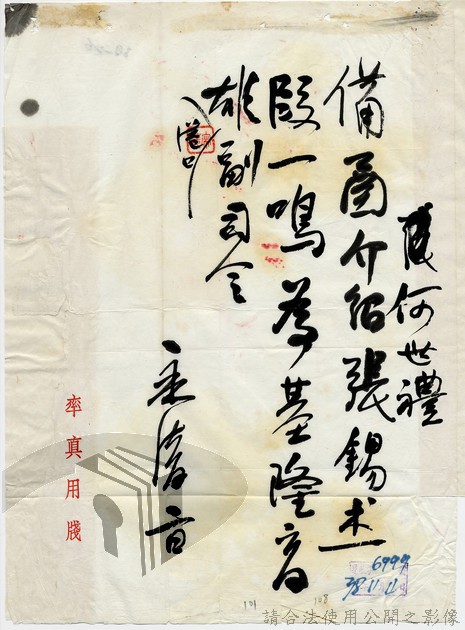 何世禮
備函介紹張錫杰
段一鳴為基隆高
雄副司令
率真用牋
6999
38.11.11
101
108
請合法使用公開之影像